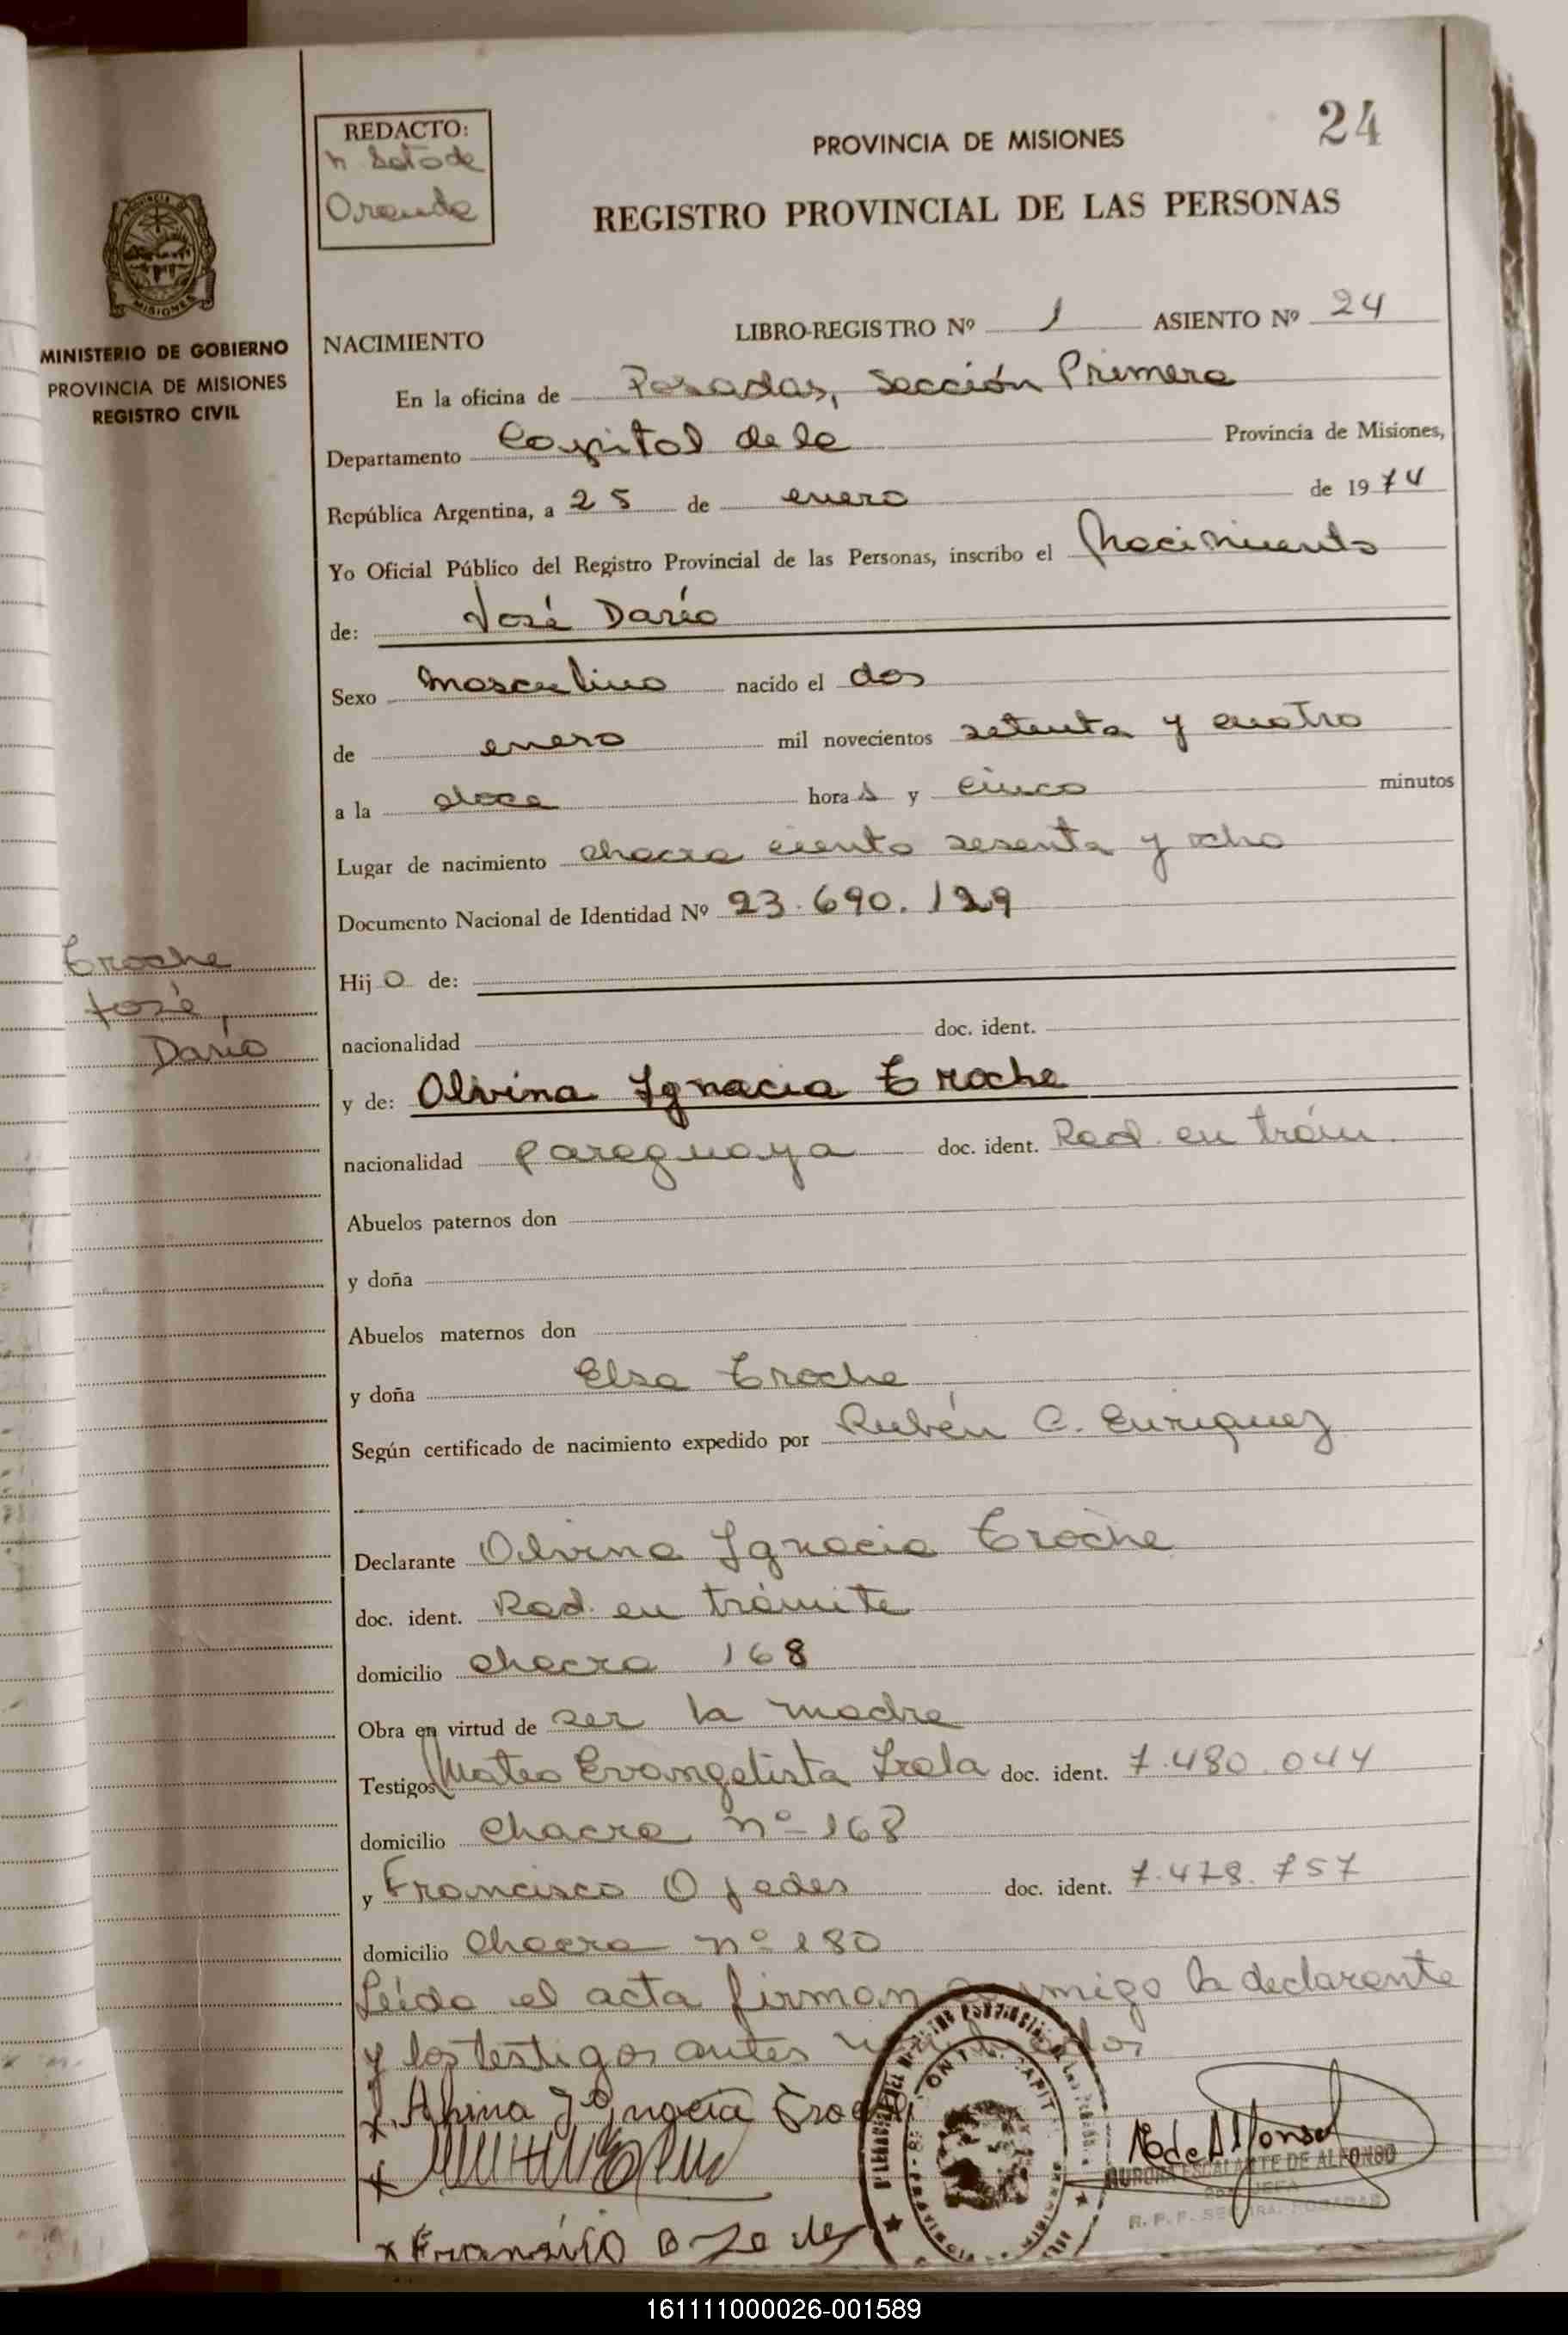 24
REDACTO:
PROVINCIA DE MISIONES
REGISTRO PROVINCIAL DE LAS PERSONAS
MISIONES
MINISTERIO DE GOBIERNO
PROVINCIA DE MISIONES
REGISTRO CIVIL
NACIMIENTO LIBRO-REGISTRO Nº 1 ASIENTO Nº 24
En la oficina de Posadas, Sección Primera
Departamento Capital de la Provincia de Misiones,
República Argentina, a 25 de enero de 1974
Yo Oficial Público del Registro Provincial de las Personas, inscribo el Nacimiento
de: José Darío
Sexo Masculino nacido el dos
de enero mil novecientos setenta y cuatro
a la doce horas y cinco minutos
Lugar de nacimiento chacra ciento sesenta y ocho
Documento Nacional de Identidad Nº 23.690.129
Troche
José,
Darío
Hijo de:
nacionalidad doc. ident.
y de: Olvina Ignacia Troche
nacionalidad paraguaya doc. ident. Rad. en trám.
Abuelos paternos don
y doña
Abuelos maternos don
y doña Elsa Troche
Según certificado de nacimiento expedido por Rubén C. Enriquez
Declarante Olvina Ignacia Troche
doc. ident. Rad. en trámite
domicilio chacra 168
Obra en virtud de ser la madre
Testigos Mateo Evangelista Irala doc. ident. 7.480.044
domicilio Chacra nº 168
y Francisco Ojedes doc. ident. 7.478.757
domicilio Chacra nº 180
Leída el acta firman conmigo la declarante
y los testigos antes
AURORA ESCALANTE DE ALFONSO
161111000026-001589